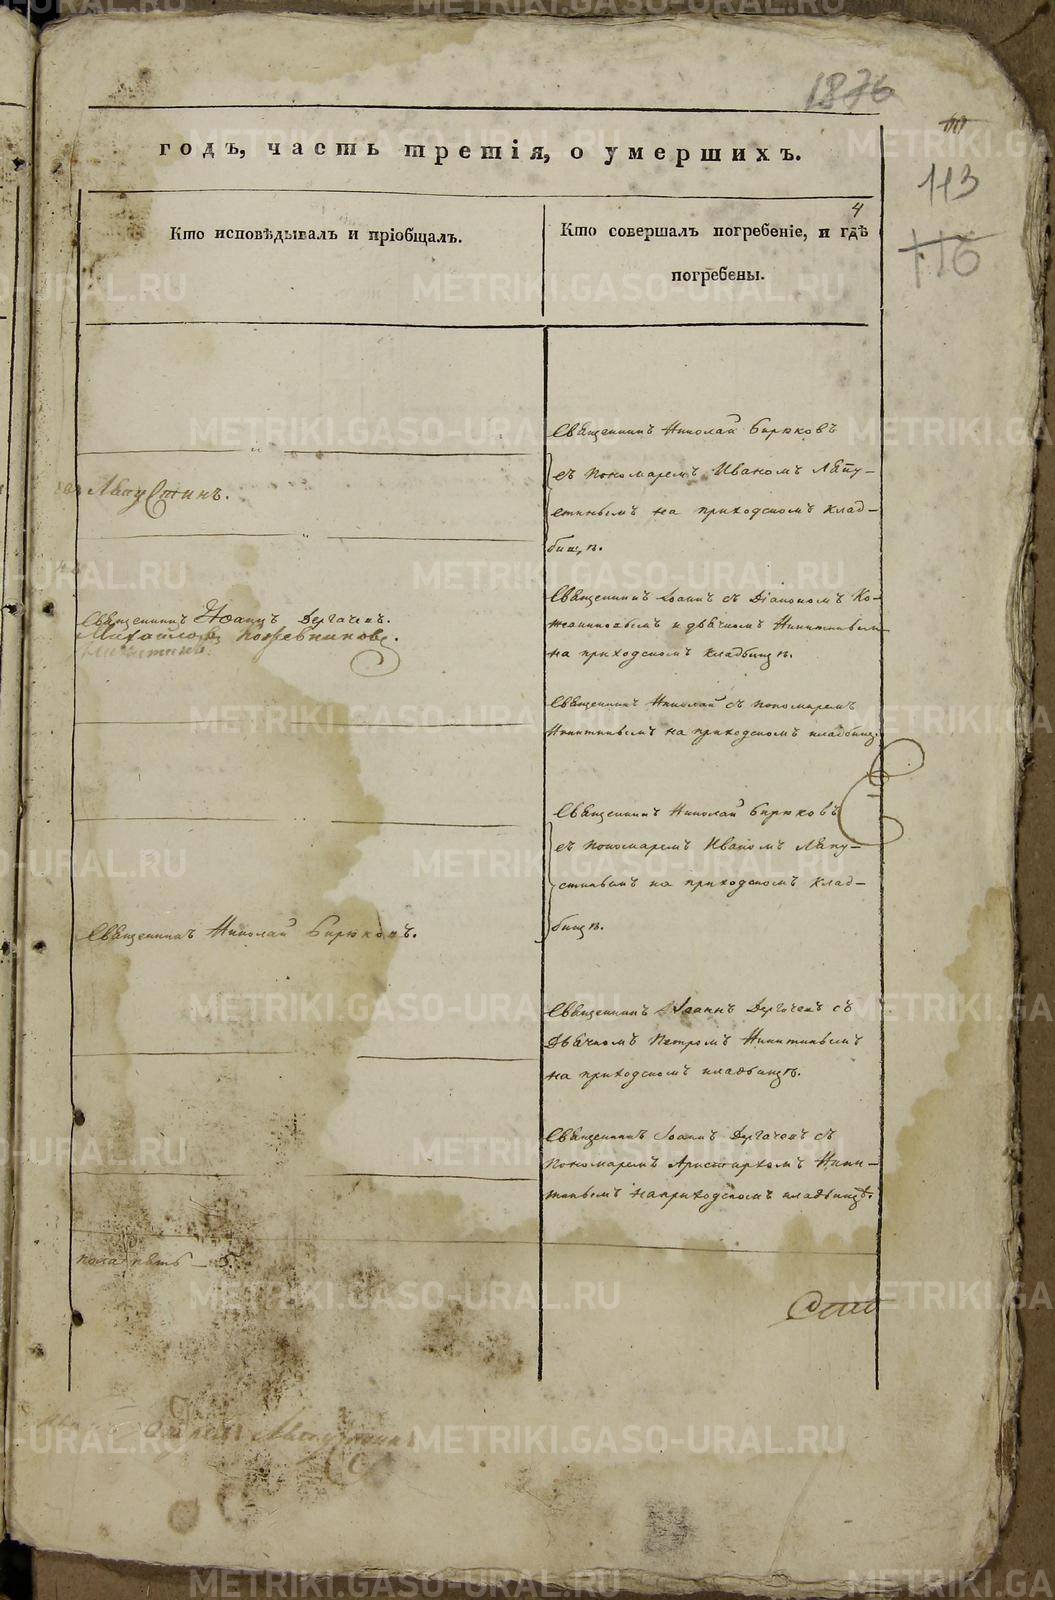 1876
годъ, часть третія, о умершихъ.
113
116
4
Кто исповѣдывалъ и пріобщалъ.
Кто совершалъ погребеніе, и гдѣ
погребены.
Священникъ Николай Бирюковъ
съ пономаремъ Иваномъ Ляпу-
стинымъ на приходскомъ клад-
бищѣ.
Ляпустинъ.
Священникъ Іоаннъ Дергачевъ.
Михайловъ Кожевниковъ.
Священникъ Іоаннъ съ Діакономъ Ко-
жевниковымъ и дьячкомъ Никитинымъ
на приходскомъ кладбищѣ.
Священникъ Николай съ пономаремъ
Никитинымъ на приходскомъ кладбищѣ.
Священникъ Николай Бирюковъ
съ пономаремъ Иваномъ Ляпу-
стинымъ на приходскомъ клад-
бищѣ.
Священникъ Николай Бирюковъ.
Священникъ Іоаннъ Дергачевъ съ
Дьячкомъ Петромъ Никитинымъ
на приходскомъ кладбищѣ.
Священникъ Іоаннъ Дергачевъ съ
Пономаремъ Аристархомъ Ники-
тинымъ на приходскомъ кладбищѣ.
пола пять — 5.
Ляпустинъ
METRIKI.GASO-URAL.RU